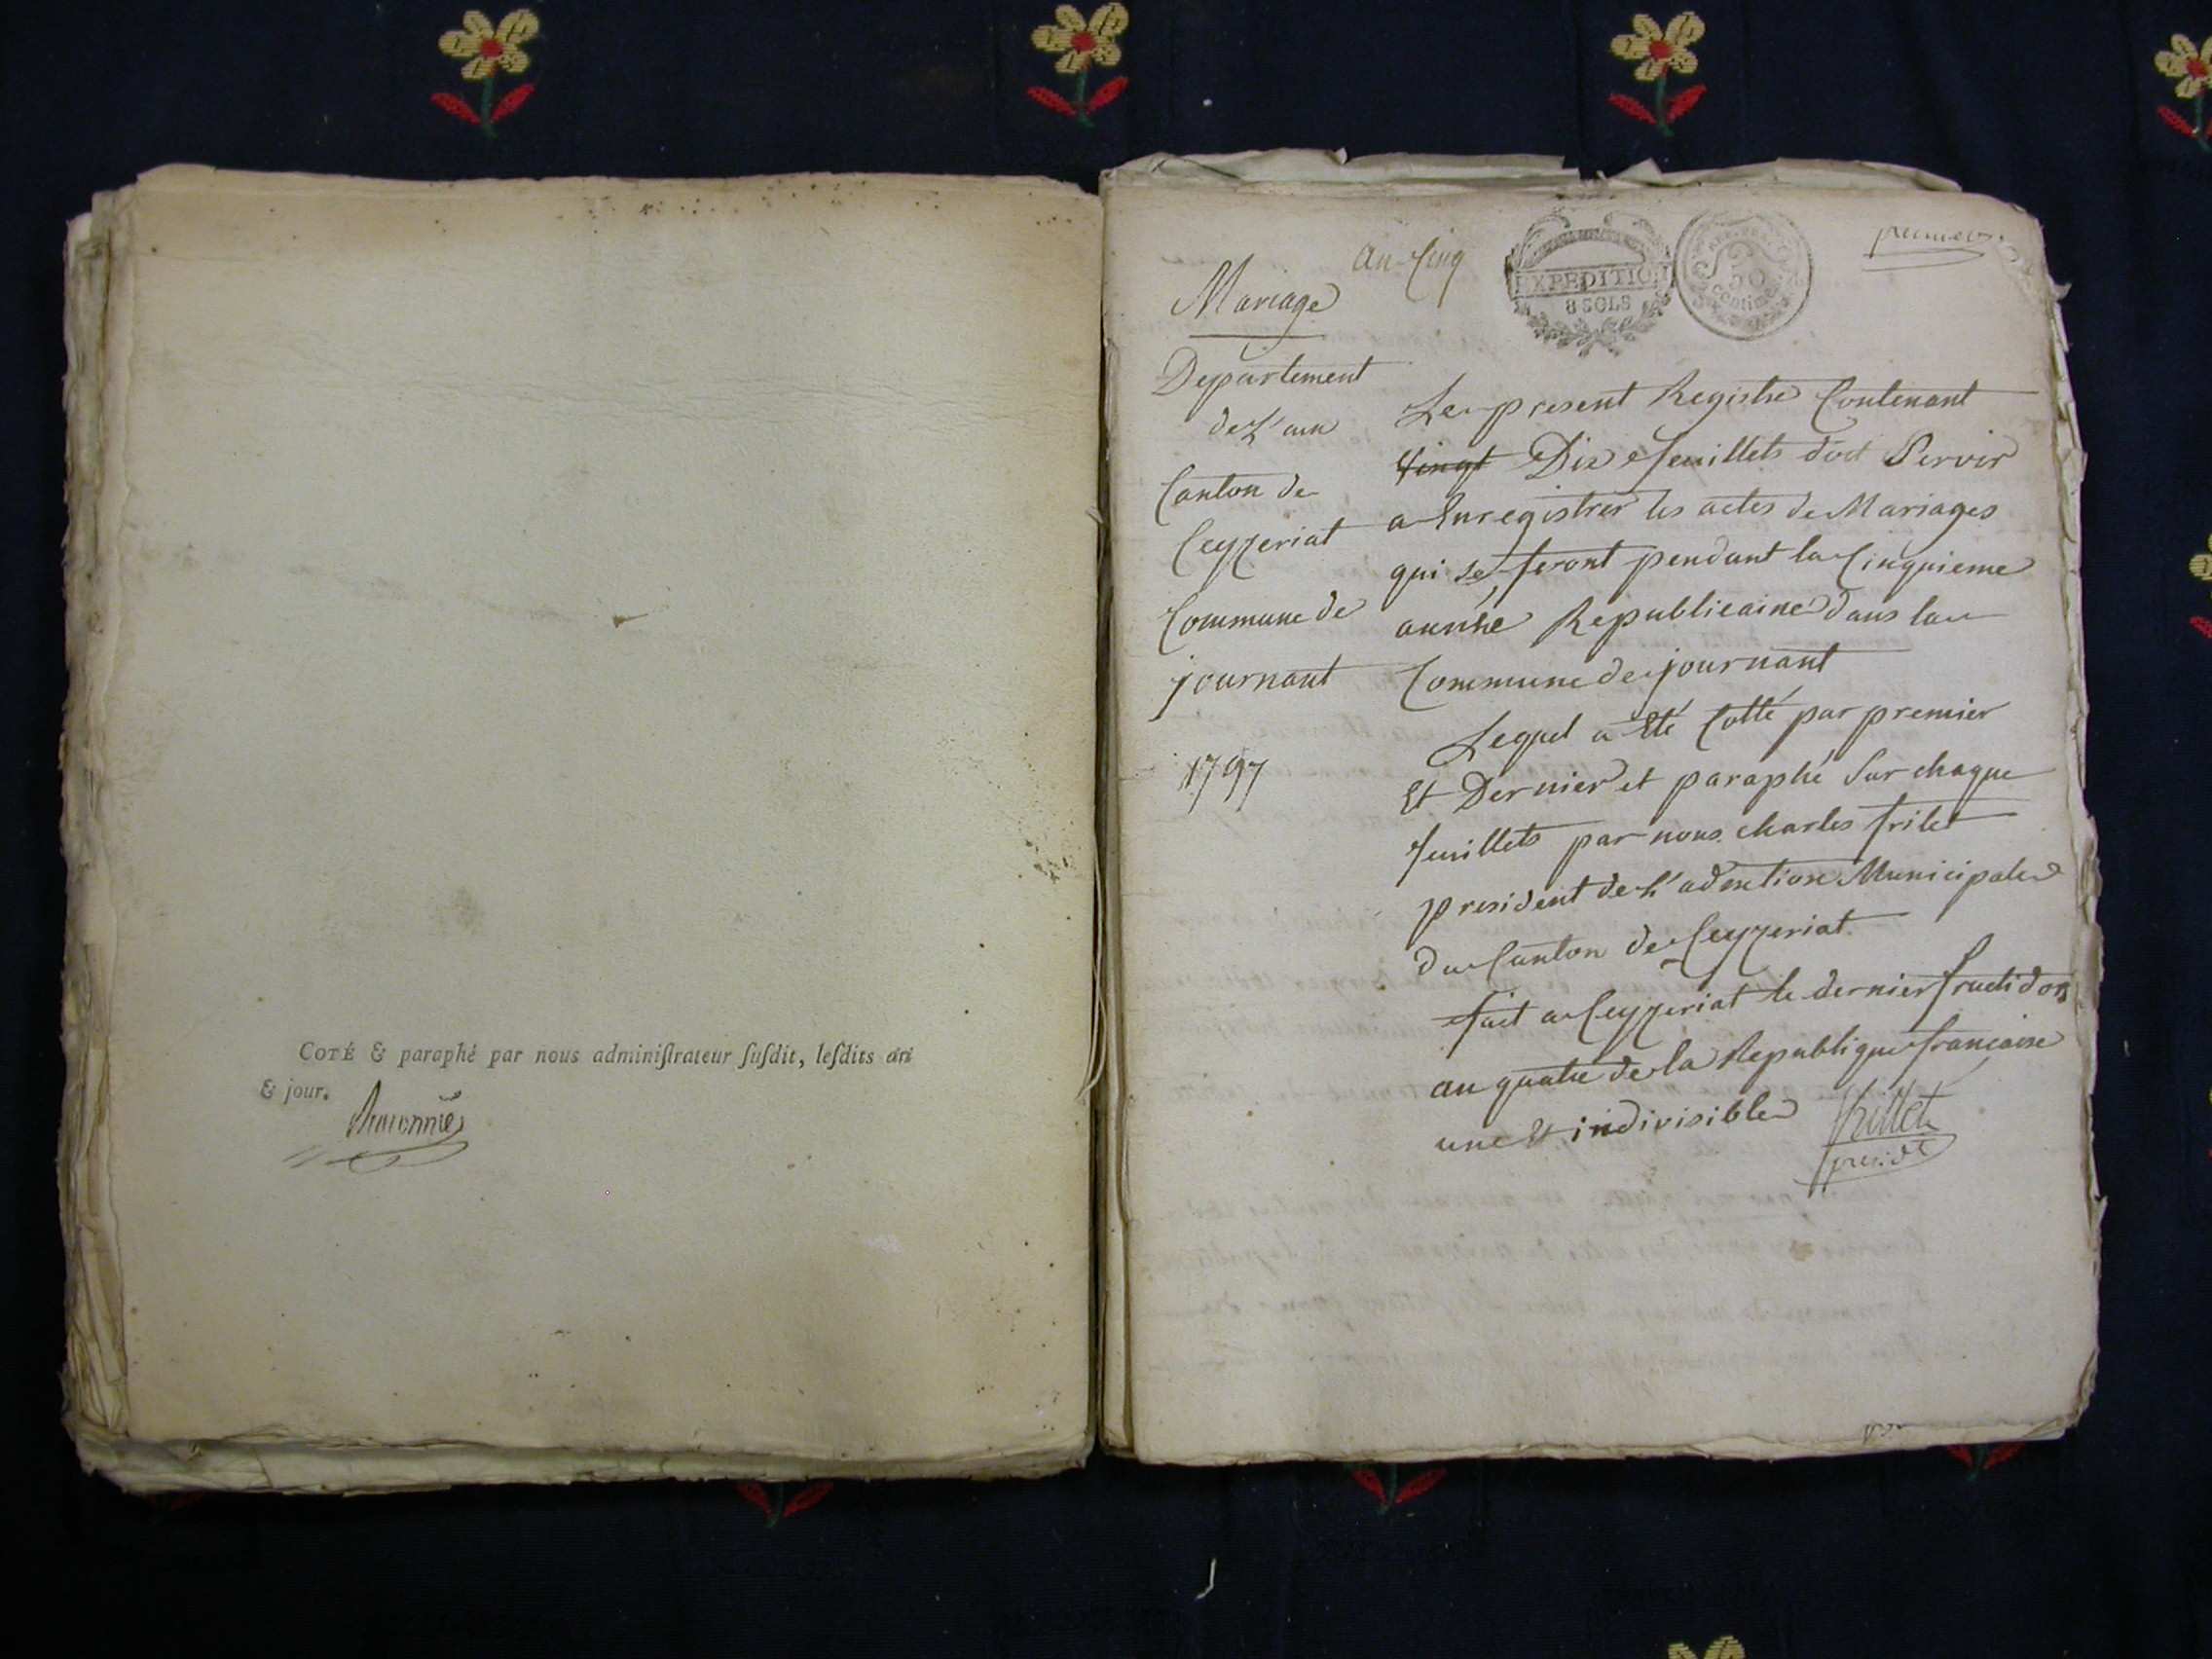 COTÉ & paraphé par nous adminiſtrateur ſuſdit, leſdits an
& jour.
an Cinq
EXPEDITION
8 SOLS
50
centimes
premier
Mariage
Departement
de L'ain
Canton de
Ceyzeriat
Commune de
journant
1797
Le present Registre Contenant
vingt Dix feuillets doit Servir
a Enregistrer les actes de Mariages
qui se feront pendant la Cinquieme
année Republicaine dans la
Commune de journant
Lequel a Eté Cotté par premier
Et Dernier et paraphé Sur chaque
feuillets par nous charles frilet
president de L'admtion Municipale
du Canton de Ceyzeriat.
fait a Ceyzeriat le dernier fructidor
an quatre de la Republique francaise
une Et indivisible
frillet
presidt